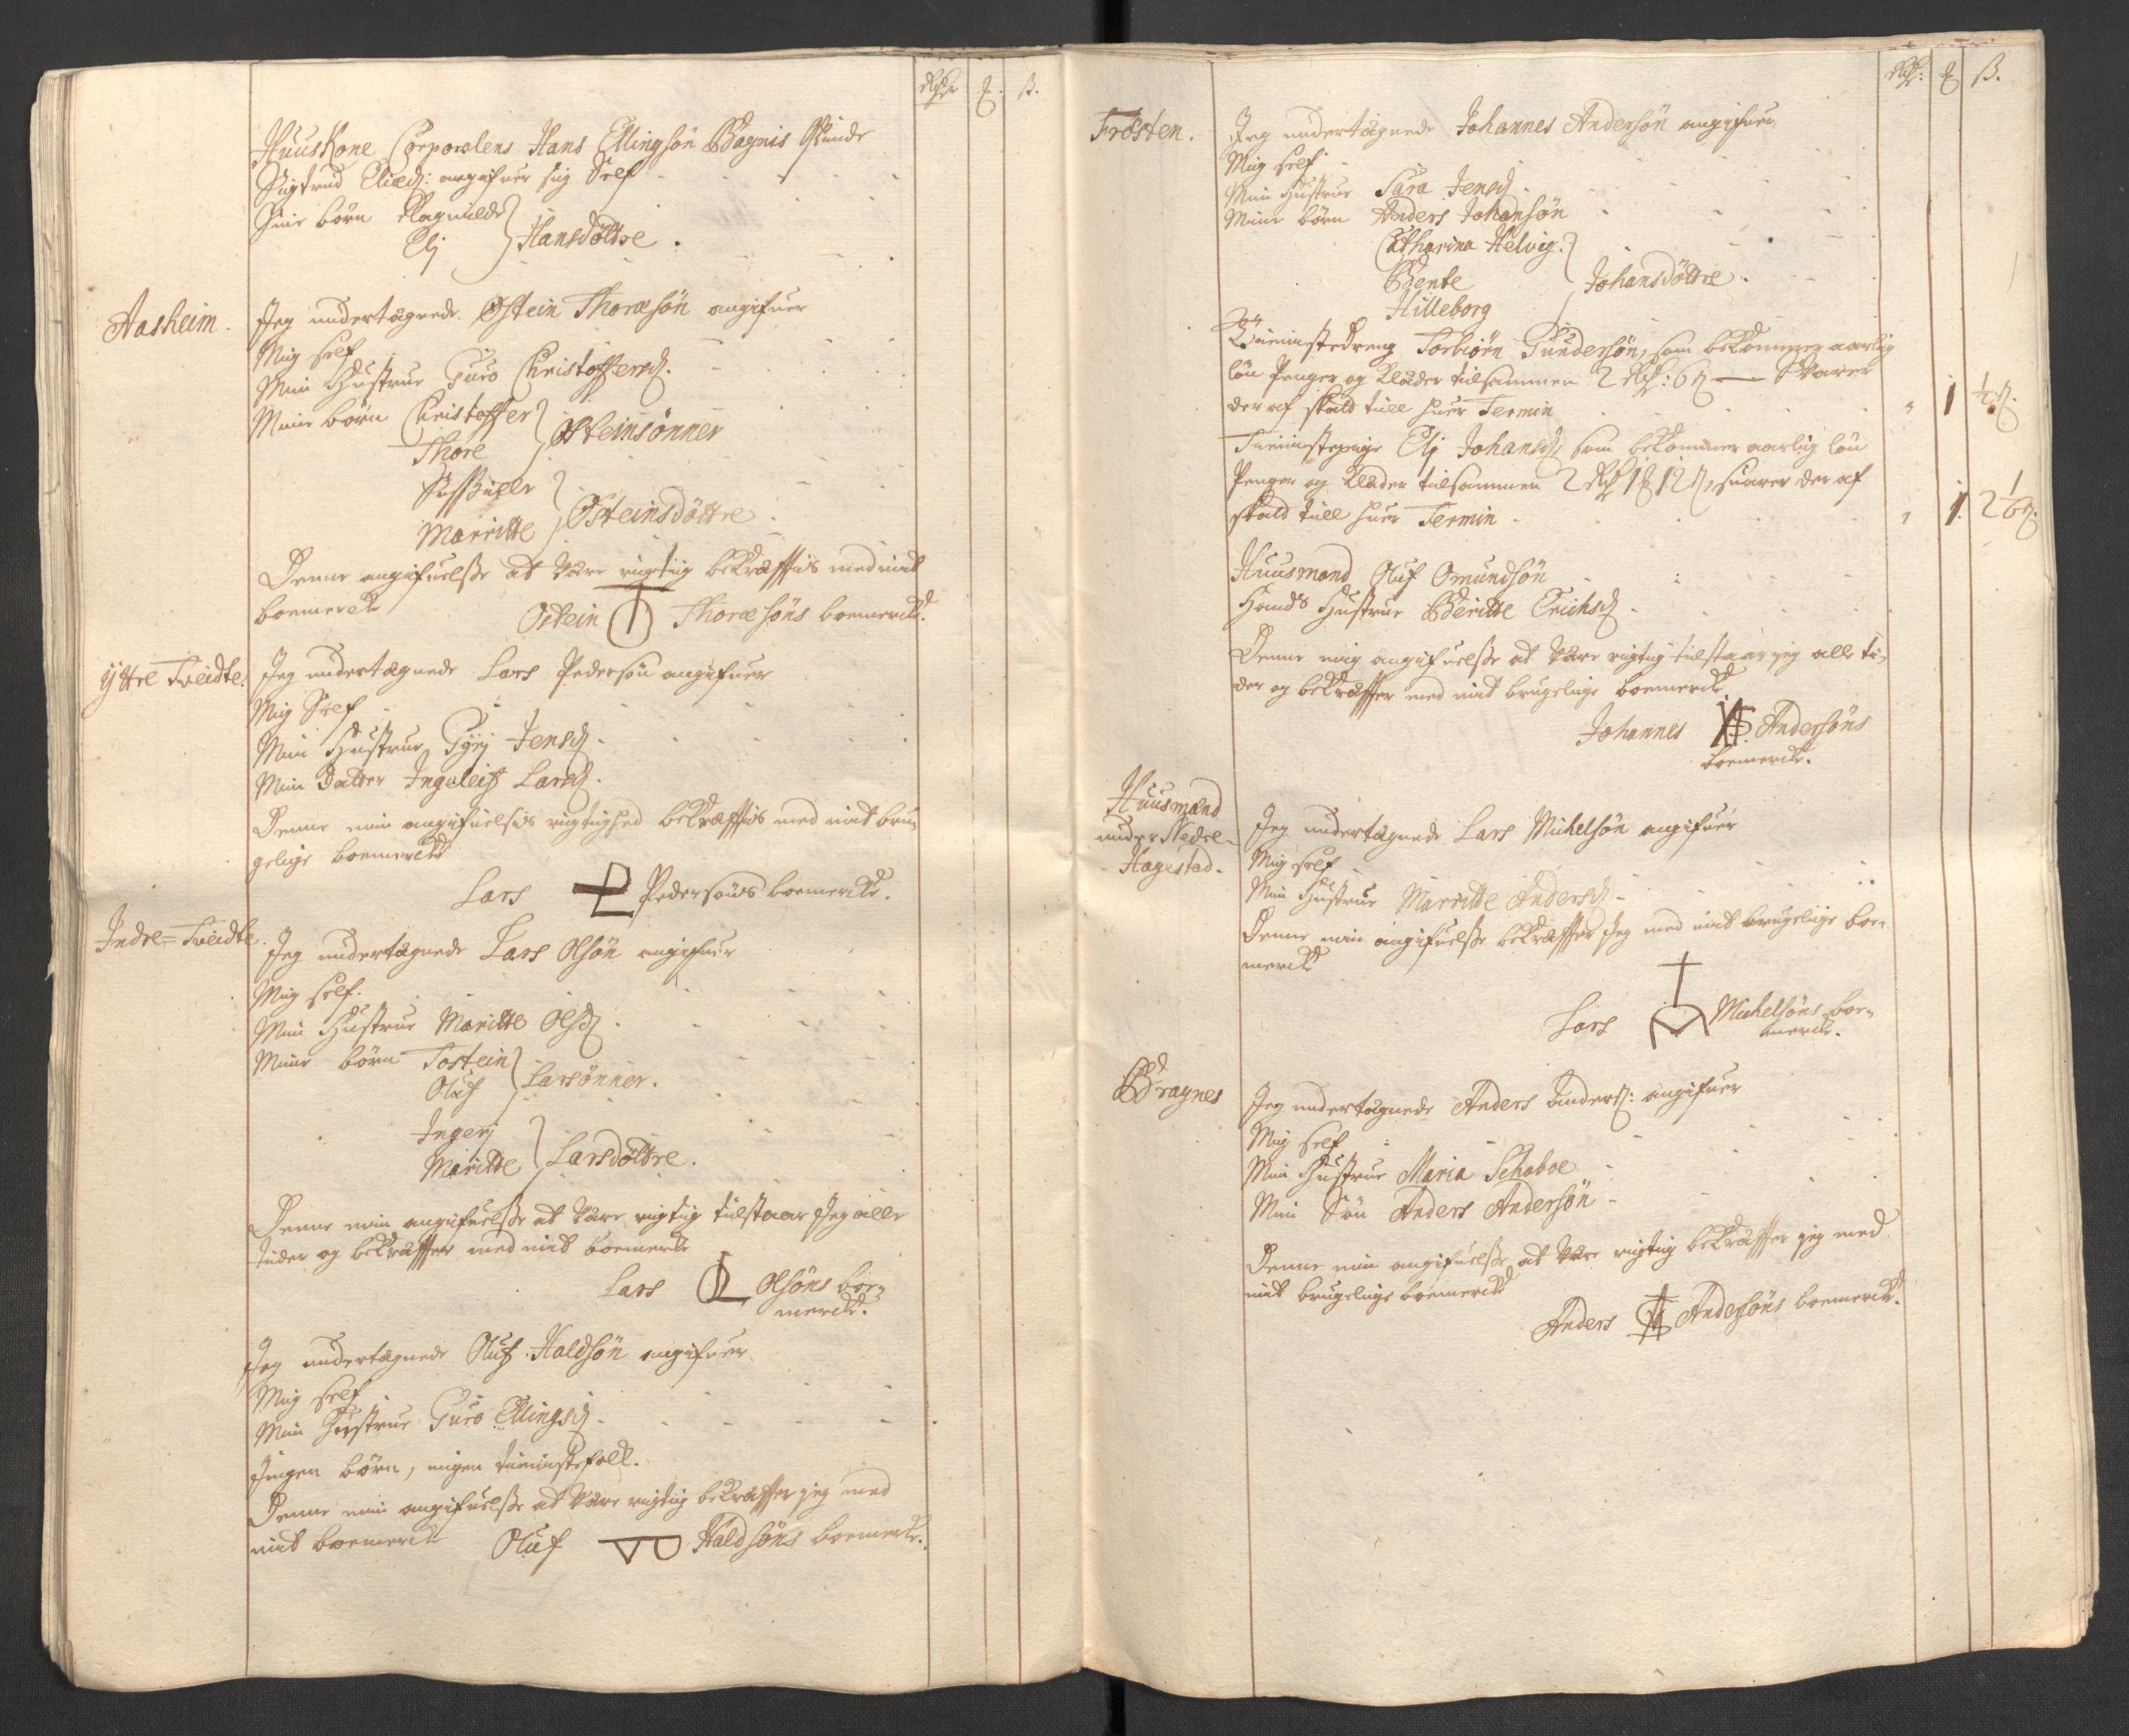 Rdr ₰. ß.
Huuskone Corporalens Hans Ellingsøn Bagnis Quinde
Sigtrud Elied: angifuer sig Self
Sine børn Ragnilde
Elj } Hansdøttre.
Aasheim.
Jeg undertegnede Østein Thoresøn angifuer
Mig self
Min Hustrue Guro Christoffersd.
Mine børn Christoffer
Thore } Østeinsønner
Marritte } Østeinsdøttre
Denne angifuelsse at Være rigtig bekræfftis med mit
boemerck
Ostein Thoresøns boemerck.
Yttre Tveidte.
Jeg undertegnede Lars Pedersøn angifuer
Mig Self
Min Hustrue Gyrj Jensd.
Min Datter Ingeleif Larsd.
Denne min angifuelsis rigtighed bekræfftis med mit bru-
gelige boemerck
Lars Pedersøns boemercke.
Indre-Tveidte.
Jeg undertegnede Lars Olsøn angifuer
Mig self.
Min Hustrue Maritte Olsd.
Mine børn Tostein
Oluf } Larsønner.
Ingerj
Maritte } Larsdøttre.
Denne min angifuelsse at Være rigtig tilstaar Jeg alle
tider og bekræffter med mit boemercke
Lars Olsøns boe-
mercke.
Jeg undertegnede Oluf Haldsøn angifuer
Mig self
Min Hustrue Guro Ellingsd.
Ingen børn, ingen tienistefolk.
Denne min angifuelsse at Være rigtig bekræffter jeg med
mit boemerck
Oluf Haldsøns boemercke.
Rdr: ₰ ß.
Frøsten.
Jeg undertegnede Johannes Andersøn angifuer
Mig self
Min Hustrue Sara Jensd.
Mine børn Anders Johansøn
Catharina Helvig.
Bente
Hilleborg } Johansdøttre.
Tienistedreng Torbiørn Gundersøn, som bekommer aarlig
løn Penger og Klæder tilsammen 2 Rdr: 6 ß — Svarer
der af skatt till huer Termin 1 ½ ß.
Tienistepige Elj Johansd, som bekommer aarlig løn
Penger og Klæder tilsammen 2 Rdr 1 ₰ 12 ß, suarer der af
skatt till huer Termin 1 2 ß.
Huusmand Oluf Omundsøn
Hands Hustrue Beritte Erichsd
Denne mig angifuelsse at Være rigtig tilstaar jeg alle ti-
der og bekræffter med mit brugelige boemerck
Johannes Andersøns
boemercke.
Huusmand
under Nedre-
Hagestad.
Jeg undertegnede Lars Michelsøn angifuer
Mig self
Min Hustrue Marritte Andersd
Denne min angifuelsse bekræffter Jeg med mit brugelige boe-
merck
Lars Michelsøns boe-
mercke.
Bragnes
Jeg undertegnede Anders Anders: angifuer
Mig self
Min Hustrue Maria Schaboe
Min Søn Anders Andersøn
Denne min angifuelsse at Være rigtig bekræffter jeg med
mit brugelige boemerck
Anders Andersøns boemerck.